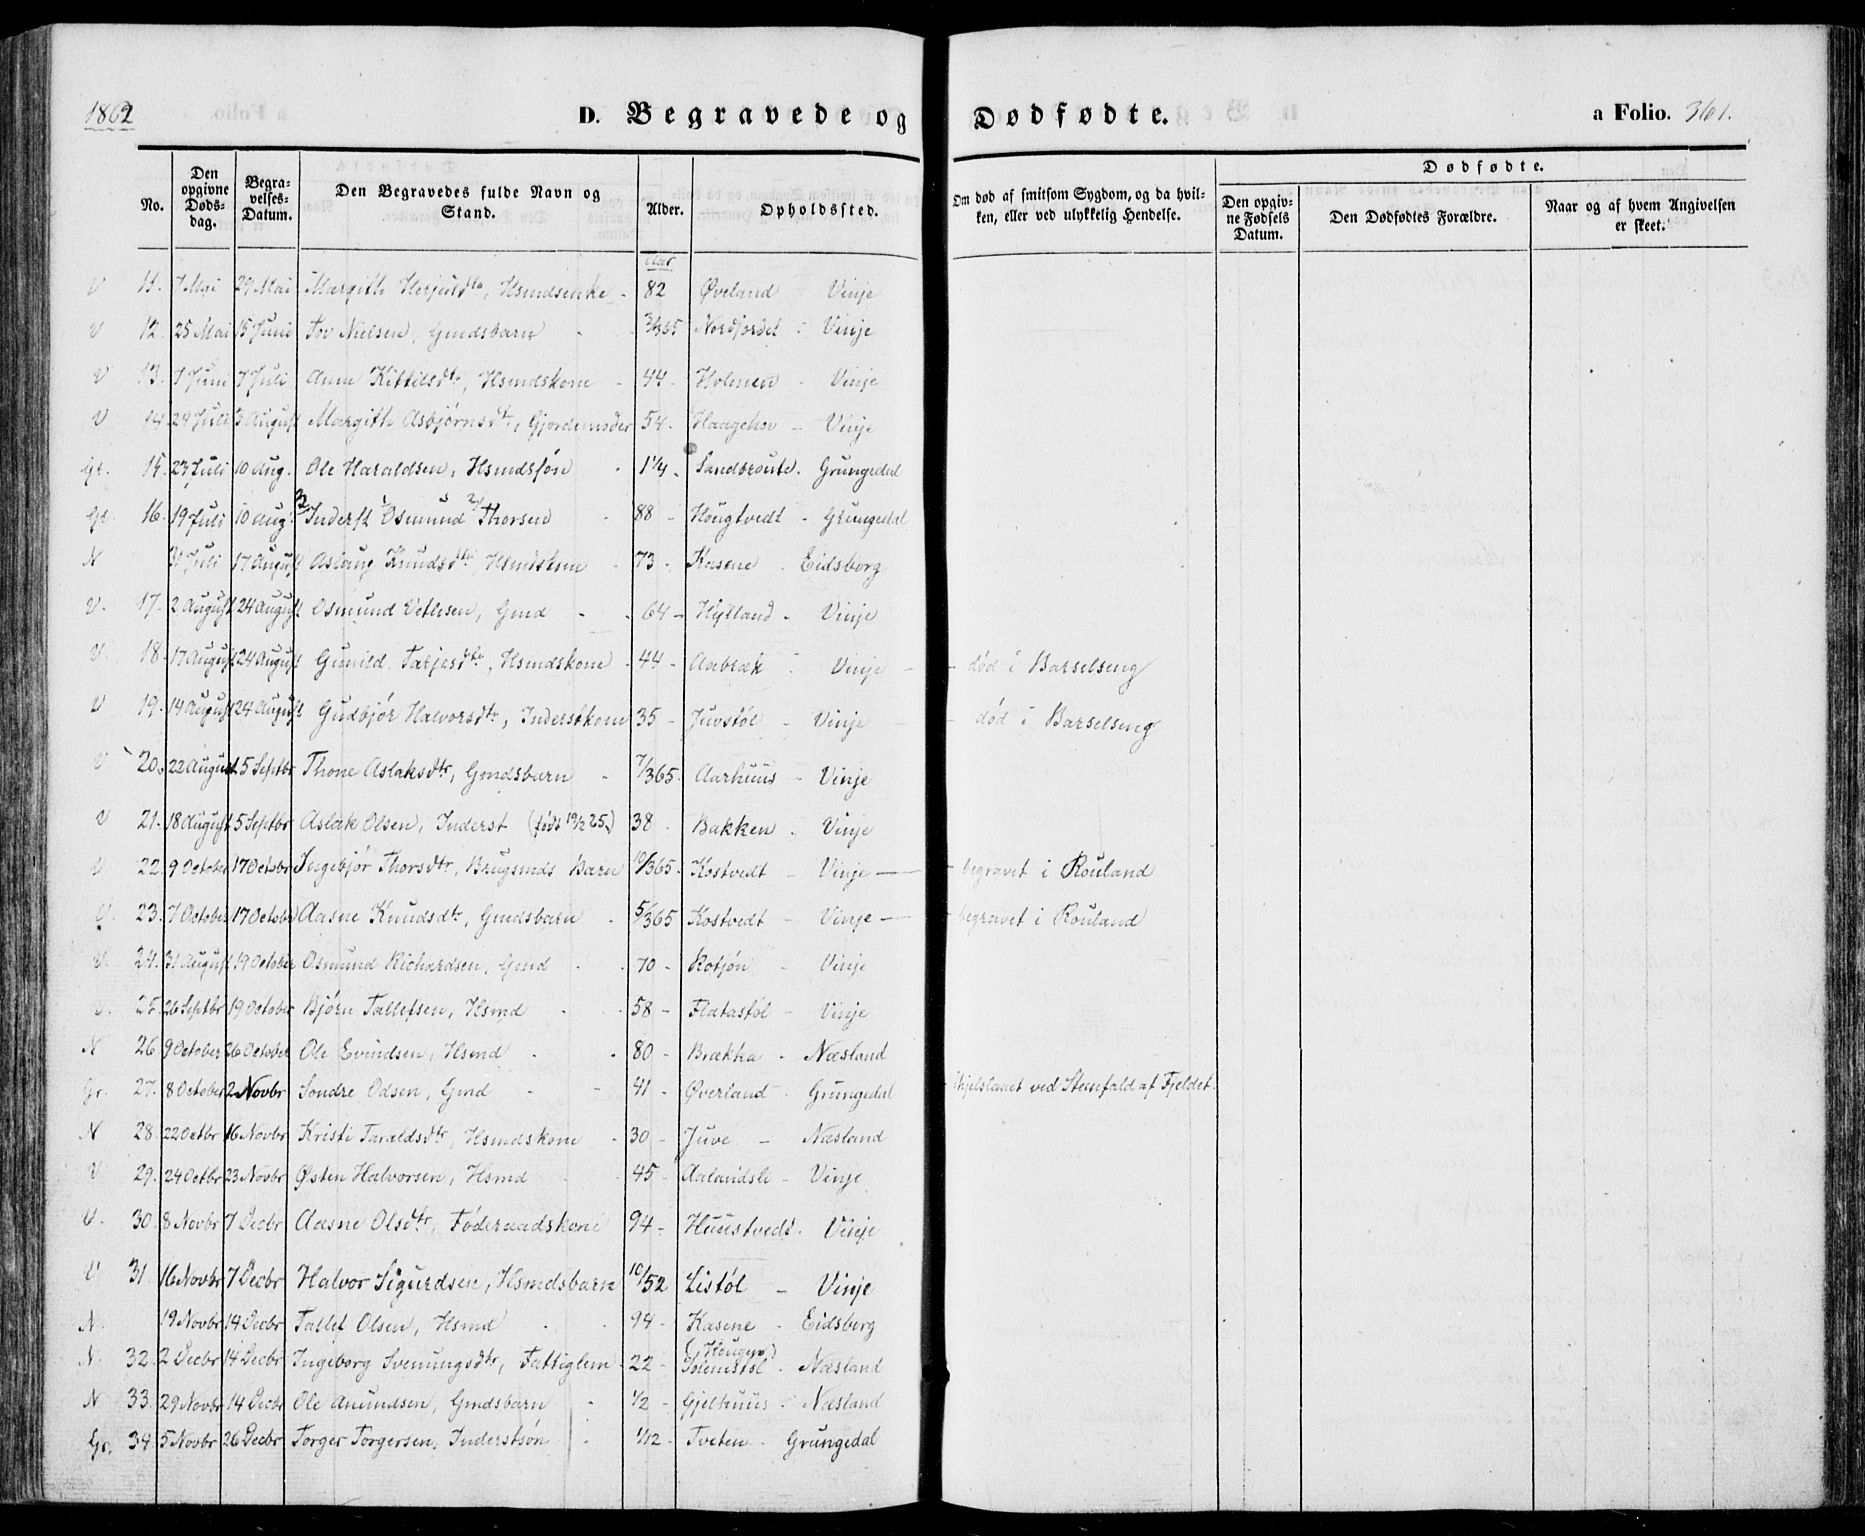 1862
D. Begravede og Dødfødte.
a Folio. 361.
No. | Den opgivne Døds-dag. | Begra-velses-Datum. | Den Begravedes fulde Navn og Stand. | Alder. | Opholdssted. | Om død af smitsom Sygdom, og da hvil-ken, eller ved ulykkelig Hendelse. | Dødfødte. | Den opgiv-ne Fødsels Datum. | Den Dødfødtes Forældre. | Naar og af hvem Angivelsen er skeet.
Aar
V 11. 7 Mai 29 Mai Margith Herjulsdtr, Hsmdsenke - 82 Øveland Vinje
V 12. 25 Mai 15 Juni Tov Nielsen, Gmdsbarn - 3/365 Nordjordet - Vinje
V 13. 1 Juni 7 Juli Anne Kittilsdtr, Hsmdskone - 44 - Holmen - Vinje
V 14. 24 Juli 3 August Margith Asbjørnsdtr, Gjordemoder 54. Haagehov - Vinje
Gr. 15. 23 Juli 10 Aug. Ole Haraldsen, Hsmdssøn - 1 1/4 - Sandbroute. Grungedal
Gr. 16. 19 Juli 10 Aug. Inderst Osmund Thorsen - 88 - Hougtvedt - Grungedal
N 31 Juli 17 August Aslaug Knudsdtr, Hsmdskone - 73 - Kasene - Eidsborg
V. 17. 2 August 24 August Osmund Vetlesen, Gmd - 64 - Hylland - Vinje
V. 18. 17 August 24 August Gunild Tarjesdtr, Hsmdskone - 44 - Aabræk - Vinje - død i Barselseng
V 19. 14 August 24 August Gudbjør Halvorsdtr, Inderstkone 35 - Juvstøl - Vinje - død i Barselseng
V 20. 22 August 5 Septbr Thone Aslaksdtr, Gmdsbarn - 7/365. Aarhuus - Vinje
V 21. 18 August 5 Septbr Aslak Olsen, Inderst (født 19/2 25.) 38 - Bakken - Vinje
V 22. 9 October 17 October Ingebjør Thorsdtr, Brugsmds Barn 10/365. Kostvedt - Vinje - begravet i Rouland
V. 23. 7 October 17 October Aasne Knudsdtr, Gmdsbarn - 5/365 Kostvedt - Vinje - begravet i Rouland
V. 24. 31 August 19 October Osmund Richardsen, Gmd - 70 - Rotjøn - Vinje
V. 25. 26 Septbr 19 October Bjørn Tallefsen, Hsmd - 58 - Flatastøl - Vinje
N 26 9 October 26 October Ole Evindsen, Hsmd - 80 - Brækka - Næsland
Gr. 27. 8 October 2 Novbr Sondre Odsen, Gmd - 41 - Øverland - Grungedal ihjelslaaet ved Steenfald af Fjeldet.
N 28. 22 Octbr 16 Novbr Kristi Taraldsdtr, Hsmdskone - 30 - Juve - Næsland
V 29. 24 Octbr 23 Novbr Østen Halvorsen, Hsmd - 45 - Aalandsli - Vinje
V. 30. 8 Novbr 7 Decbr Aasne Olsdtr, Føderaadskone 94 - Huustvedt. Vinje
V 31. 16 Novbr 7 Decbr Halvor Sigurdsen, Hsmdsbarn 10/52 Listøl - Vinje
N. 19 Novbr 14 Decbr Tallef Olsen, Hsmd - 94 - Kasene - Eidsborg
N. 32. 2 Decbr 14 Decbr Ingeborg Svenungsdtr, Fattiglem - 22 - (Haugen) Næsland
N 33. 29 Novbr 14 Decbr Ole Anundsen, Gmdsbarn - 1/2 - Gjelhuus - Næsland
Gr. 34. 5 Novbr 26 Decbr Torger Torgersen, Inderstsøn - 1/12 - Tveten - Grungedal